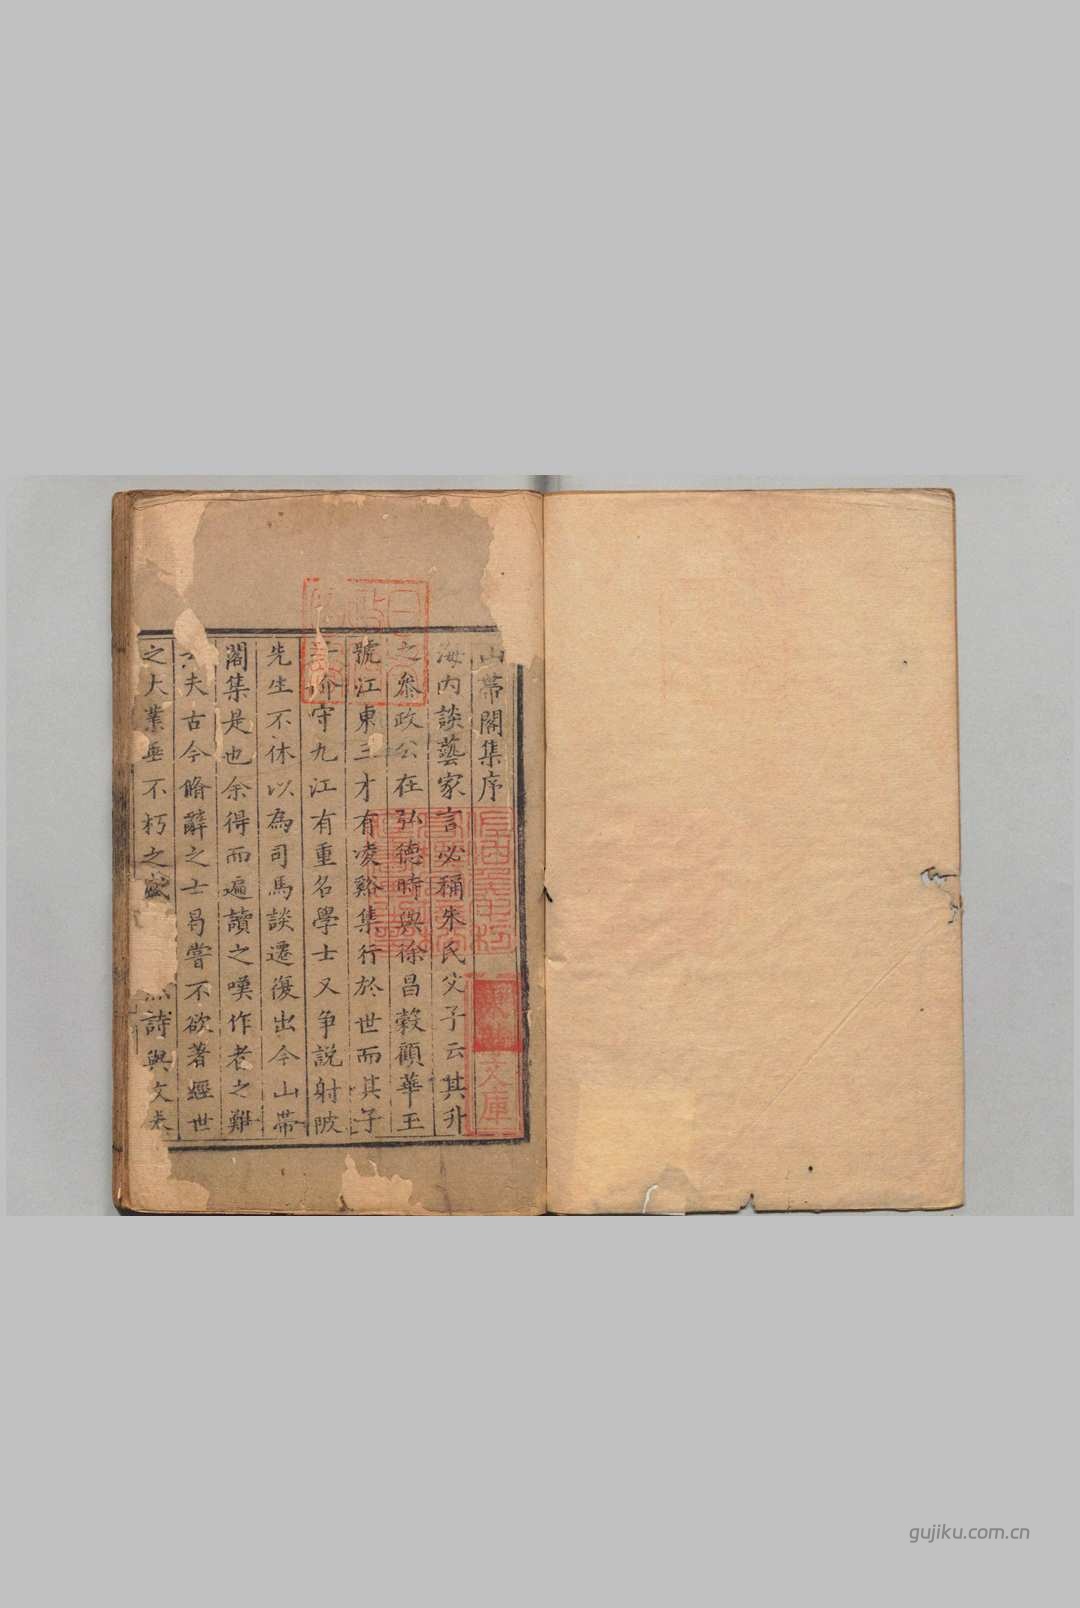 山帶閣集序
海内談藝家言必稱朱氏父子云其升
之叅政公在弘德時與徐昌穀顧華玉
號江東三才有凌谿集行於世而其子
子价守九江有重名學士又爭説射陂
先生不休以為司馬談遷復出今山帶
閣集是也余得而遍讀之嘆作者之難
夫古今脩辭之士曷嘗不欲著經世
之大業垂不朽之盛 詩與文
文庫
gujiku.com.cn